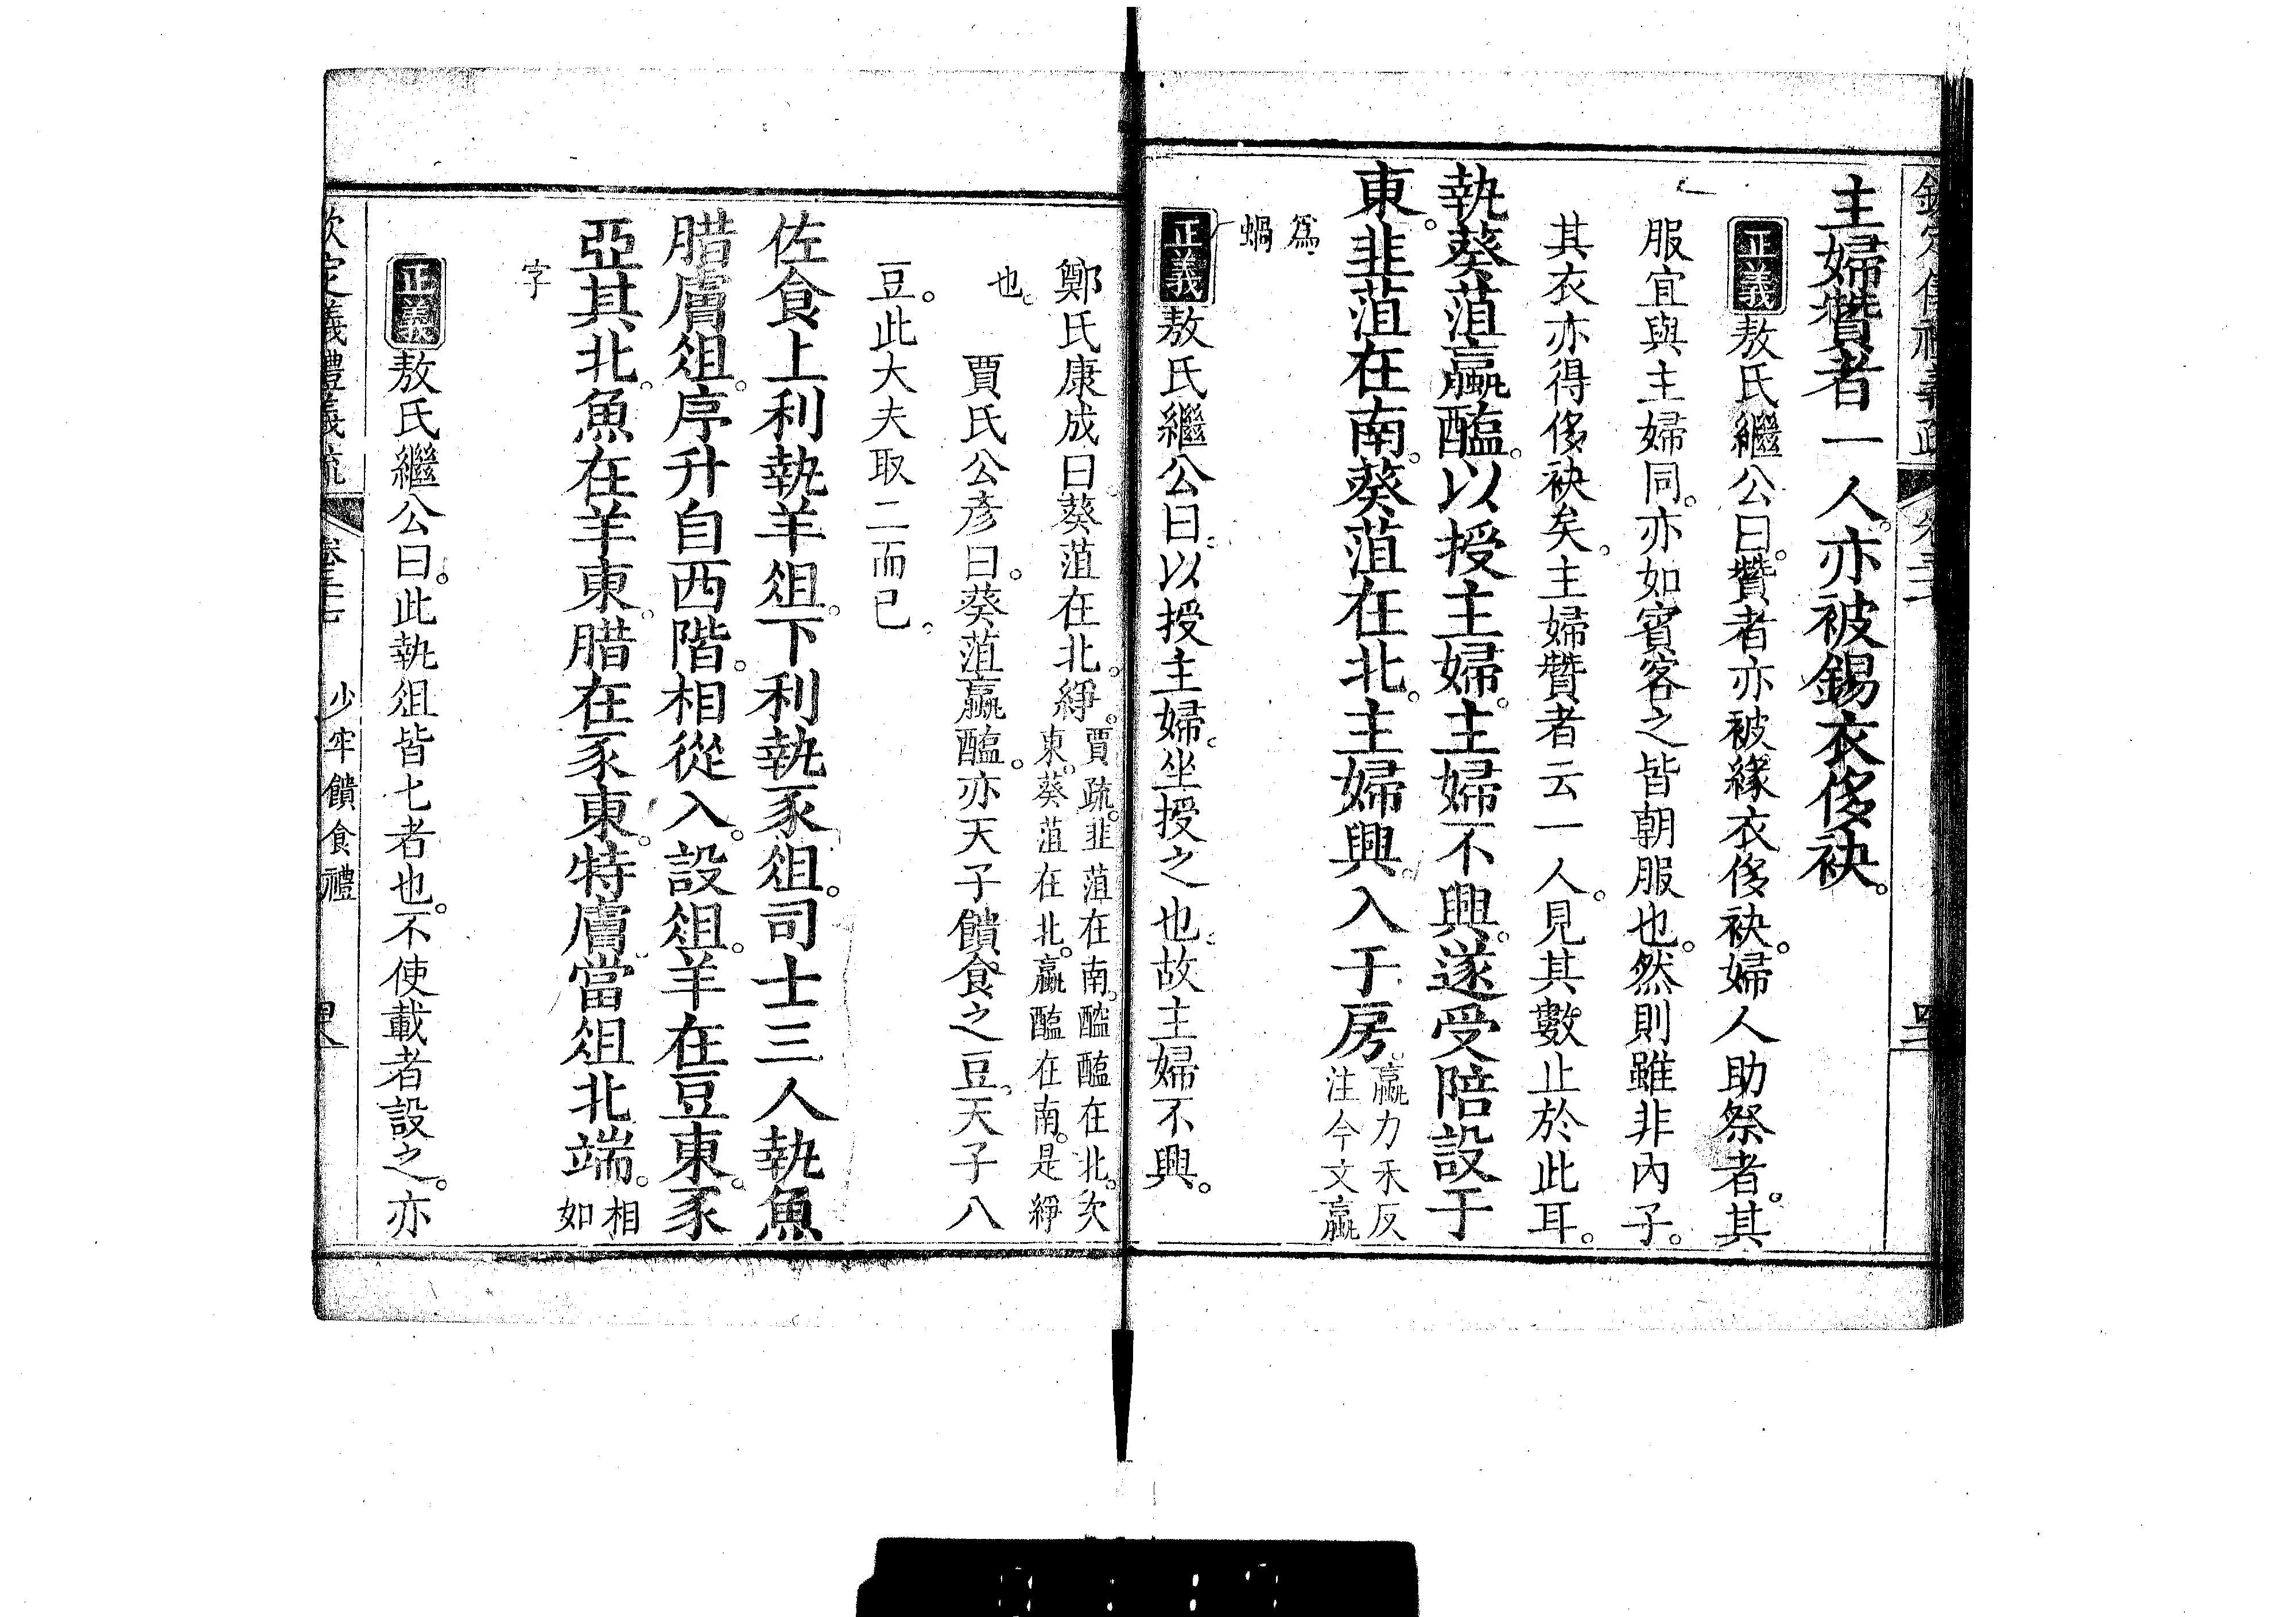 主婦贊者一人。亦被錫衣侈袂。
正義敖氏繼公曰。贊者亦被緣衣侈袂。婦人助祭者。其
服宜與主婦同。亦如賓客之皆朝服也。然則雖非內子。
其衣亦得侈袂矣。主婦贊者云一人。見其數止於此耳。
執葵菹蠃醢。以授主婦。主婦不興。遂受陪設于
東。韭菹在南。葵菹在北。主婦興。入于房。蠃力禾反
注今文蠃
為
蝸
正義敖氏繼公曰。以授主婦。坐授之也。故主婦不興。
鄭氏康成曰。葵菹在北。綪。賈疏。韭菹在南。醓醢在北。次
東。葵菹在北。蠃醢在南。是綪
也。
賈氏公彥曰。葵菹蠃醢。亦天子饋食之豆。天子八
豆。此大夫取二而已。
佐食上利執羊俎。下利執豕俎。司士三人執魚
腊膚俎。序升自西階。相從入。設俎。羊在豆東。豕
亞其北。魚在羊東。腊在豕東。特膚當俎北端。相
如
字
正義敖氏繼公曰。此執俎皆匕者也。不使載者設之。亦
欽定儀禮義疏 少牢饋食禮